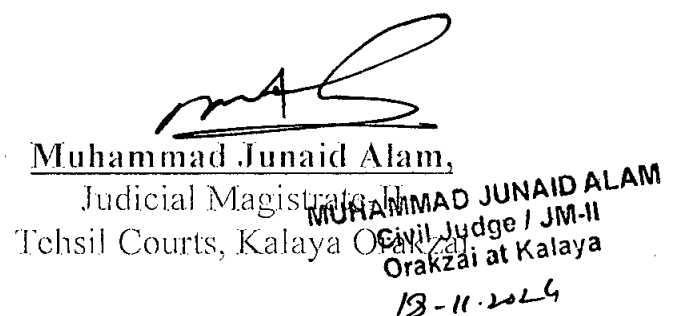 Muhammad Junaid Alam,
Judicial Magistrate-II
Tehsil Courts, Kalaya Orakzai.
MUHAMMAD JUNAID ALAM
Civil Judge / JM-II
Orakzai at Kalaya